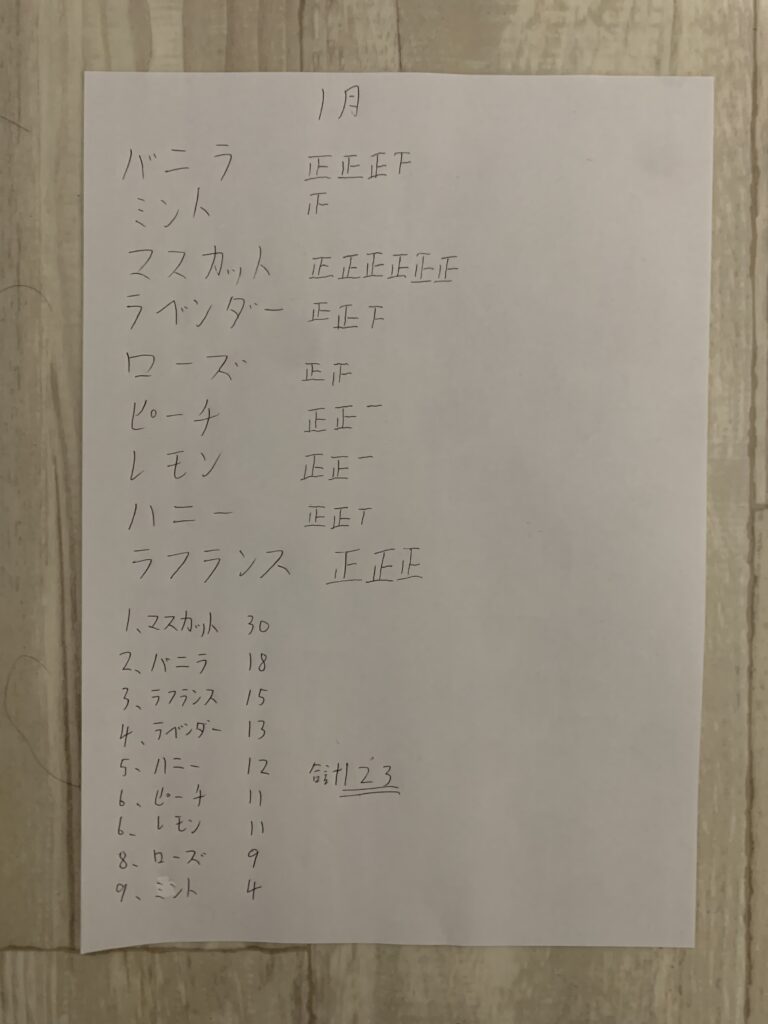 1月
バニラ 正正正下
ミント 正
マスカット 正正正正正正
ラベンダー 正正下
ローズ 正正
ピーチ 正正一
レモン 正正一
ハニー 正正T
ラフランス 正正正
1、マスカット 30
2、バニラ 18
3、ラフランス 15
4、ラベンダー 13
5、ハニー 12
6、ピーチ 11
6、レモン 11
8、ローズ 9
9、ミント 4
合計123